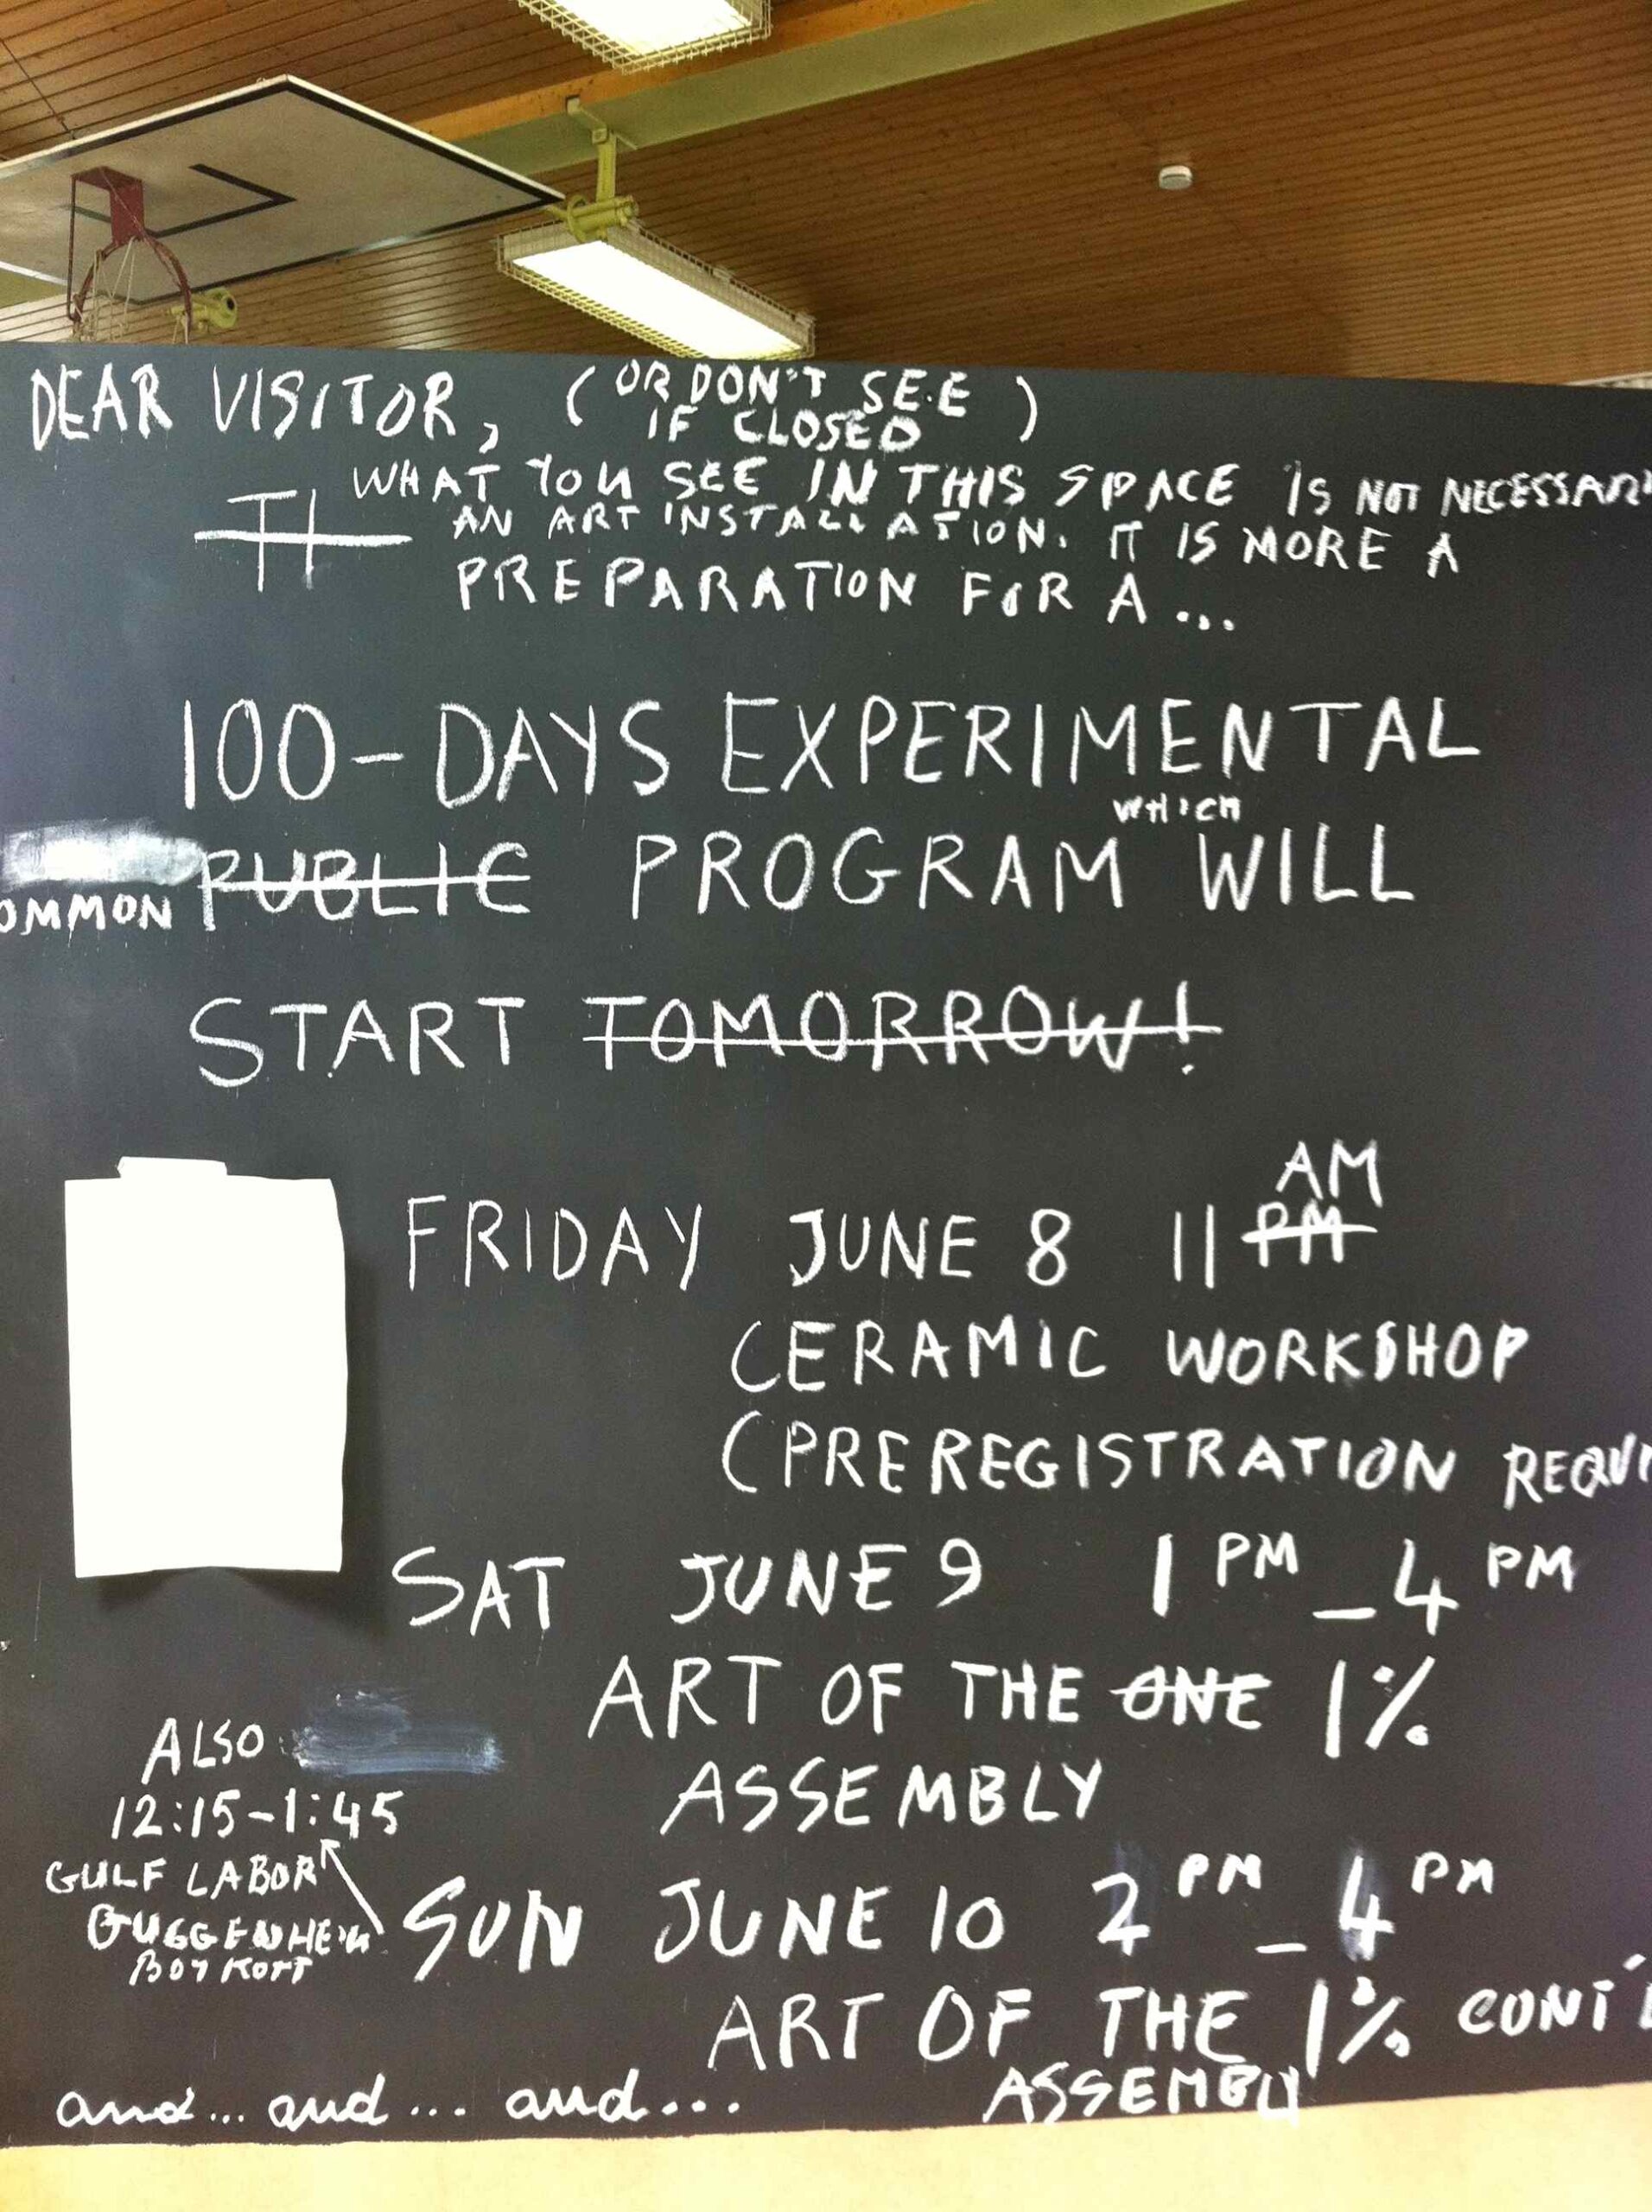 DEAR VISITOR, (OR DON'T SEE
IF CLOSED)
WHAT YOU SEE IN THIS SPACE IS NOT NECESSARI
TH
AN ART INSTALLATION. IT IS MORE A
PREPARATION FOR A...
100-DAYS EXPERIMENTAL
WHICH
OMMON PUBLIC PROGRAM WILL
START TOMORROW!
AM
FRIDAY JUNE 8 11 PM
CERAMIC WORKSHOP
(PREREGISTRATION REQUI
SAT JUNE 9 1 PM - 4 PM
ART OF THE ONE 1%
ASSEMBLY
ALSO
12:15-1:45
GULF LABOR
GUGGENHEIM
BOYKOTT
SUN JUNE 10 2 PM - 4 PM
ART OF THE 1% CONT'D
ASSEMBLY
and... and... and...